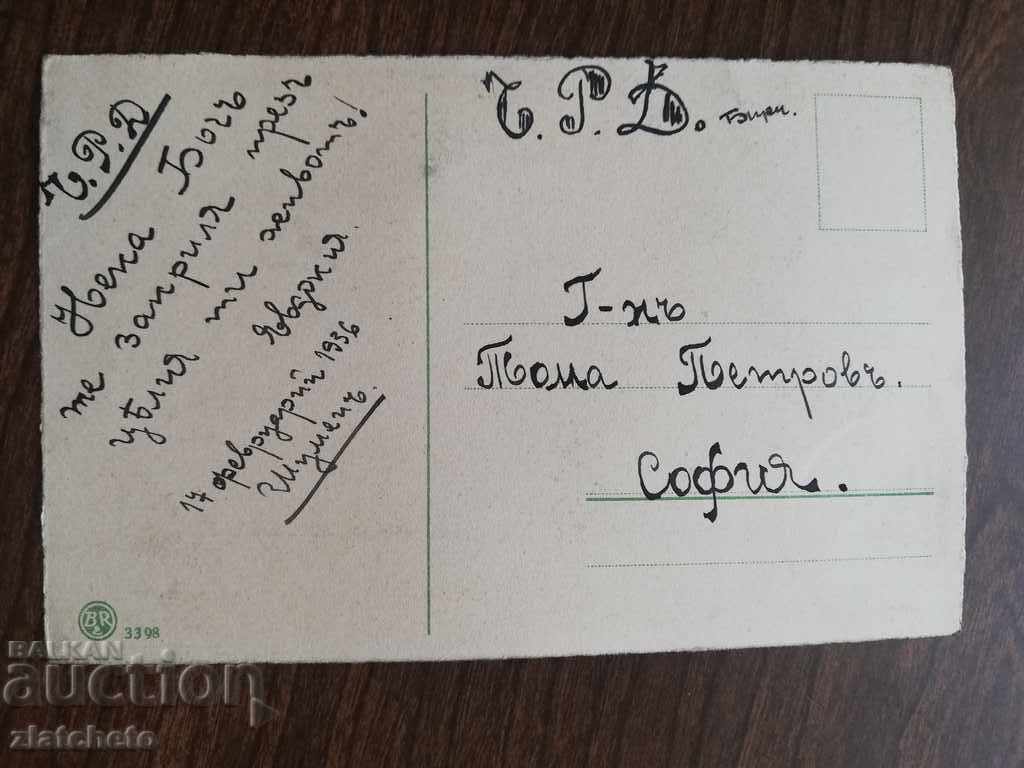 Ч. Р. Д
Нека Богъ
те закриля презъ
цѣлия ти животъ!
Евдокия.
17 февруарий 1936
Шуменъ.
Ч. Р. Д.
Г-нъ
Тома Петровъ.
София.
BR
3398
BALKAN
auction
zlatcheto